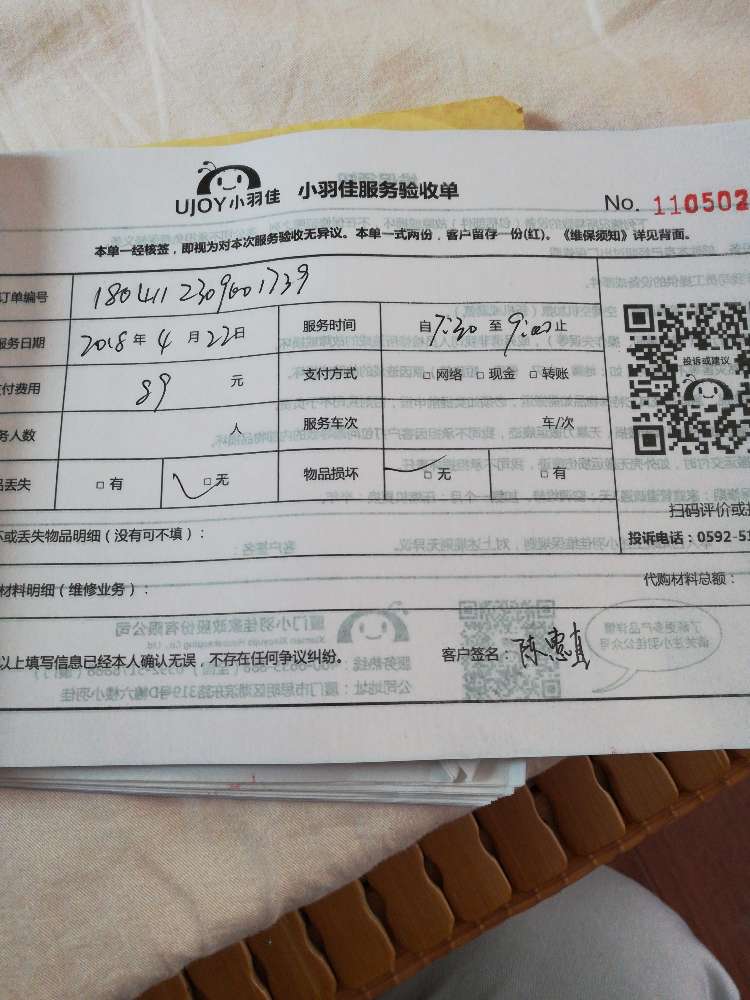 UJOY小羽佳 小羽佳服务验收单 No. 110502
本单一经核签，即视为对本次服务验收无异议。本单一式两份，客户留存一份(红)。《维保须知》详见背面。
订单编号 1804112309001739
服务日期 2018年4月22日 服务时间 自7:30至9:00止
付费用 89元 支付方式 □网络 □现金 □转账
务人数 人 服务车次 车/次
品丢失 □有 □无 物品损坏 □无 □有
投诉或建议
扫码评价或
投诉电话：0592-51
坏或丢失物品明细（没有可不填）：
材料明细（维修业务）： 代购材料总额：
以上填写信息已经本人确认无误，不存在任何争议纠纷。 客户签名：陈惠真